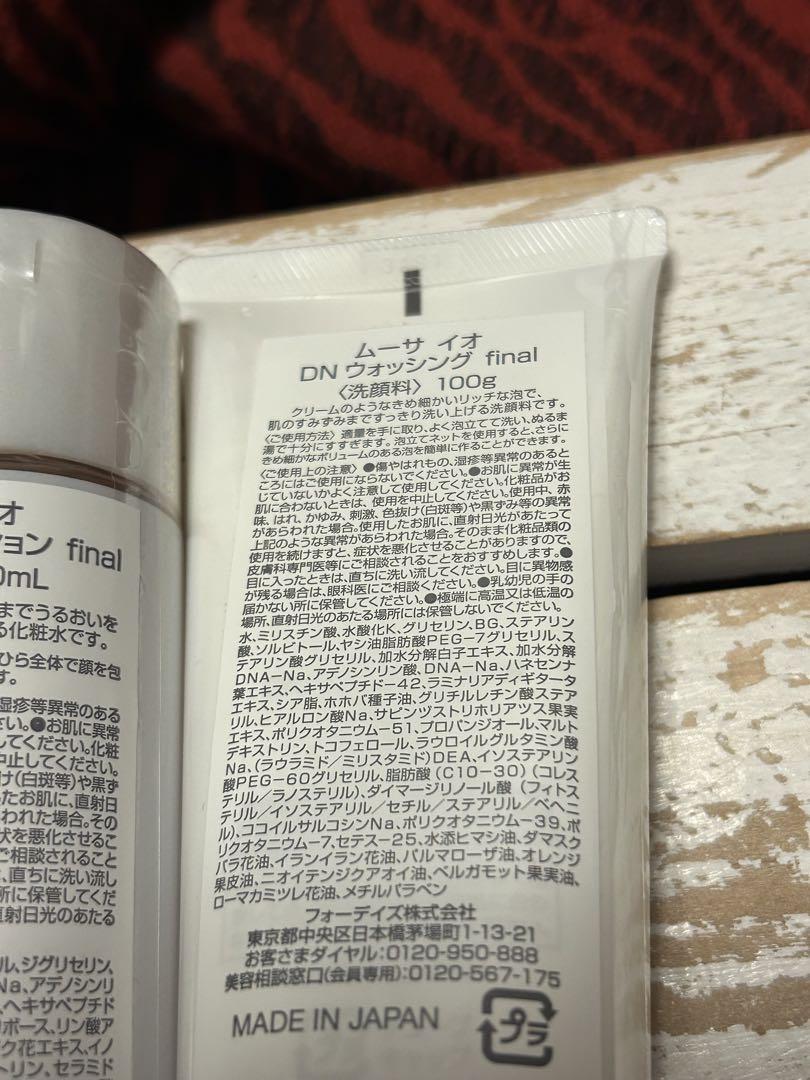 ムーサ イオ
DN ウォッシング final
〈洗顔料〉 100g
クリームのようなきめ細かいリッチな泡で、
肌のすみずみまですっきり洗い上げる洗顔料です。
〈ご使用方法〉適量を手に取り、よく泡立てて洗い、ぬるま
湯で十分にすすぎます。泡立てネットを使用すると、さらに
きめ細かなボリュームのある泡を簡単に作ることができます。
〈ご使用上の注意〉●傷やはれもの、湿疹等異常のあると
ころにはご使用にならないでください。●お肌に異常が生
じていないかよく注意して使用してください。化粧品がお
肌に合わないときは、使用を中止してください。使用中、赤
味、はれ、かゆみ、刺激、色抜け(白斑等)や黒ずみ等の異常
があらわれた場合。使用したお肌に、直射日光があたって
上記のような異常があらわれた場合。そのまま化粧品類の
使用を続けますと、症状を悪化させることがありますので、
皮膚科専門医等にご相談されることをおすすめします。●
目に入ったときは、直ちに洗い流してください。目に異物感
が残る場合は、眼科医にご相談ください。●乳幼児の手の
届かない所に保管してください。●極端に高温又は低温の
場所、直射日光のあたる場所には保管しないでください。
水、ミリスチン酸、水酸化K、グリセリン、BG、ステアリン
酸、ソルビトール、ヤシ油脂肪酸PEG-7グリセリル、ス
テアリン酸グリセリル、加水分解白子エキス、加水分解
DNA-Na、アデノシンリン酸、DNA-Na、ハネセンナ
葉エキス、ヘキサペプチド-42、ラミナリアディギタータ
エキス、シア脂、ホホバ種子油、グリチルレチン酸ステア
リル、ヒアルロン酸Na、サピンヅストリホリアツス果実
エキス、ポリクオタニウム-51、プロパンジオール、マルト
デキストリン、トコフェロール、ラウロイルグルタミン酸
Na、(ラウラミド/ミリスタミド)DEA、イソステアリン
酸PEG-60グリセリル、脂肪酸(C10-30)(コレス
テリル/ラノステリル)、ダイマージリノール酸(フィトス
テリル/イソステアリル/セチル/ステアリル/ベヘニ
ル)、ココイルサルコシンNa、ポリクオタニウム-39、ポ
リクオタニウム-7、セテス-25、水添ヒマシ油、ダマスク
バラ花油、イランイラン花油、パルマローザ油、オレンジ
果皮油、ニオイテンジクアオイ油、ベルガモット果実油、
ローマカミツレ花油、メチルパラベン
フォーデイズ株式会社
東京都中央区日本橋茅場町1-13-21
お客さまダイヤル:0120-950-888
美容相談窓口(会員専用):0120-567-175
MADE IN JAPAN
プラ
オ
ョン final
0mL
までうるおいを
る化粧水です。
ひら全体で顔を包
す。
湿疹等異常のある
さい。●お肌に異常
してください。化粧
中止してください。
け(白斑等)や黒ず
たお肌に、直射日
らわれた場合。その
状を悪化させるこ
ご相談されること
、直ちに洗い流し
所に保管してくだ
直射日光のあたる
ル、ジグリセリン、
Na、アデノシンリ
、ヘキサペプチド
リボース、リン酸ア
ク花エキス、イノ
トリン、セラミド